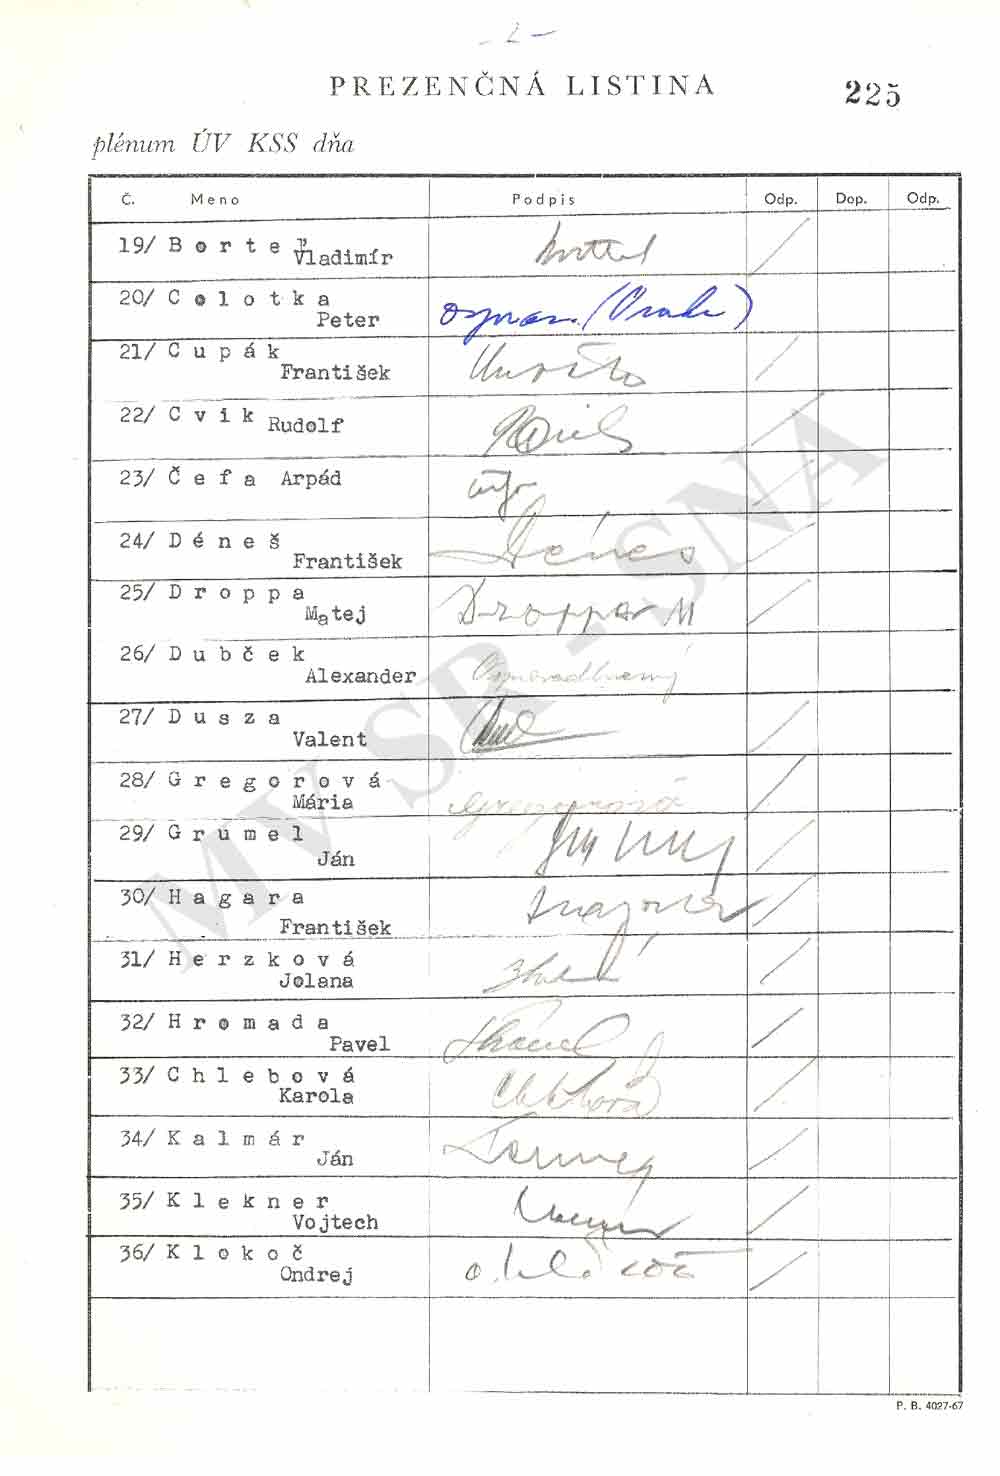 - 2 -
PREZENČNÁ LISTINA
225
plénum ÚV KSS dňa
Č. Meno Podpis Odp. Dop. Odp.
19/ Borteľ
Vladimír
20/ Colotka
Peter
osprav. (Praha)
21/ Cupák
František
22/ Cvik Rudolf
23/ Čefa Arpád
24/ Déneš
František Déneš
25/ Droppa
Matej Droppa M
26/ Dubček
Alexander Ospravedlnený
27/ Dusza
Valent
28/ Gregorová
Mária Gregorová
29/ Grumel
Ján
30/ Hagara
František
31/ Herzková
Jolana
32/ Hromada
Pavel
33/ Chlebová
Karola
34/ Kalmár
Ján
35/ Klekner
Vojtech
36/ Klokoč
Ondrej
MV SR - SNA
P. B. 4027-67